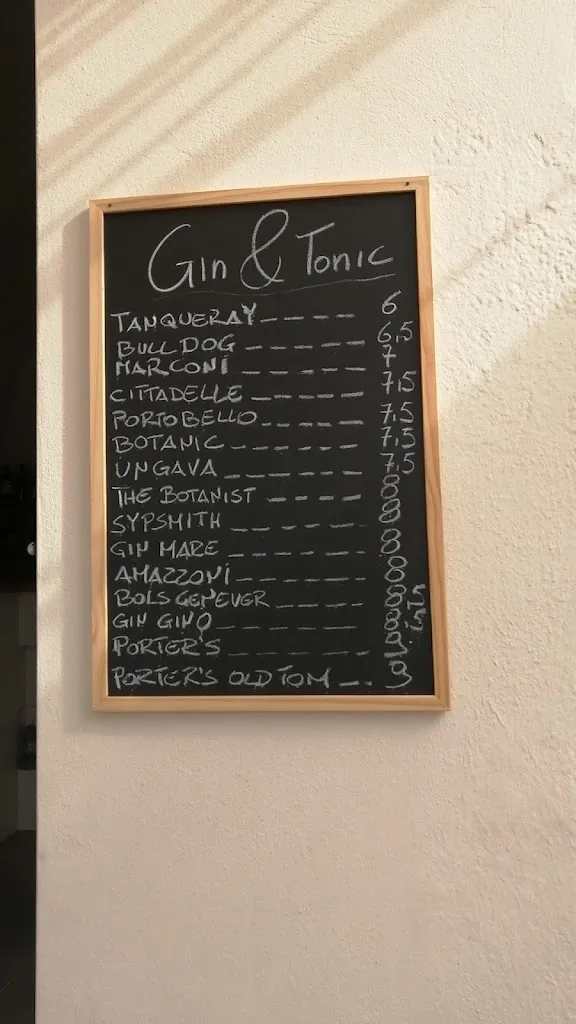 Gin & Tonic
TANQUERAY ----- 6
BULLDOG ----- 6,5
MARCONI ----- 7
CITTADELLE ----- 7,5
PORTOBELLO ----- 7,5
BOTANIC ----- 7,5
UNGAVA ----- 7,5
THE BOTANIST ----- 8
SYPSMITH ----- 8
GIN MARE ----- 8
AMAZZONI ----- 8
BOLS GENEVER ---- 8,5
GIN GINO ----- 8,5
PORTER'S ----- 9
PORTER'S OLD TOM --. 9